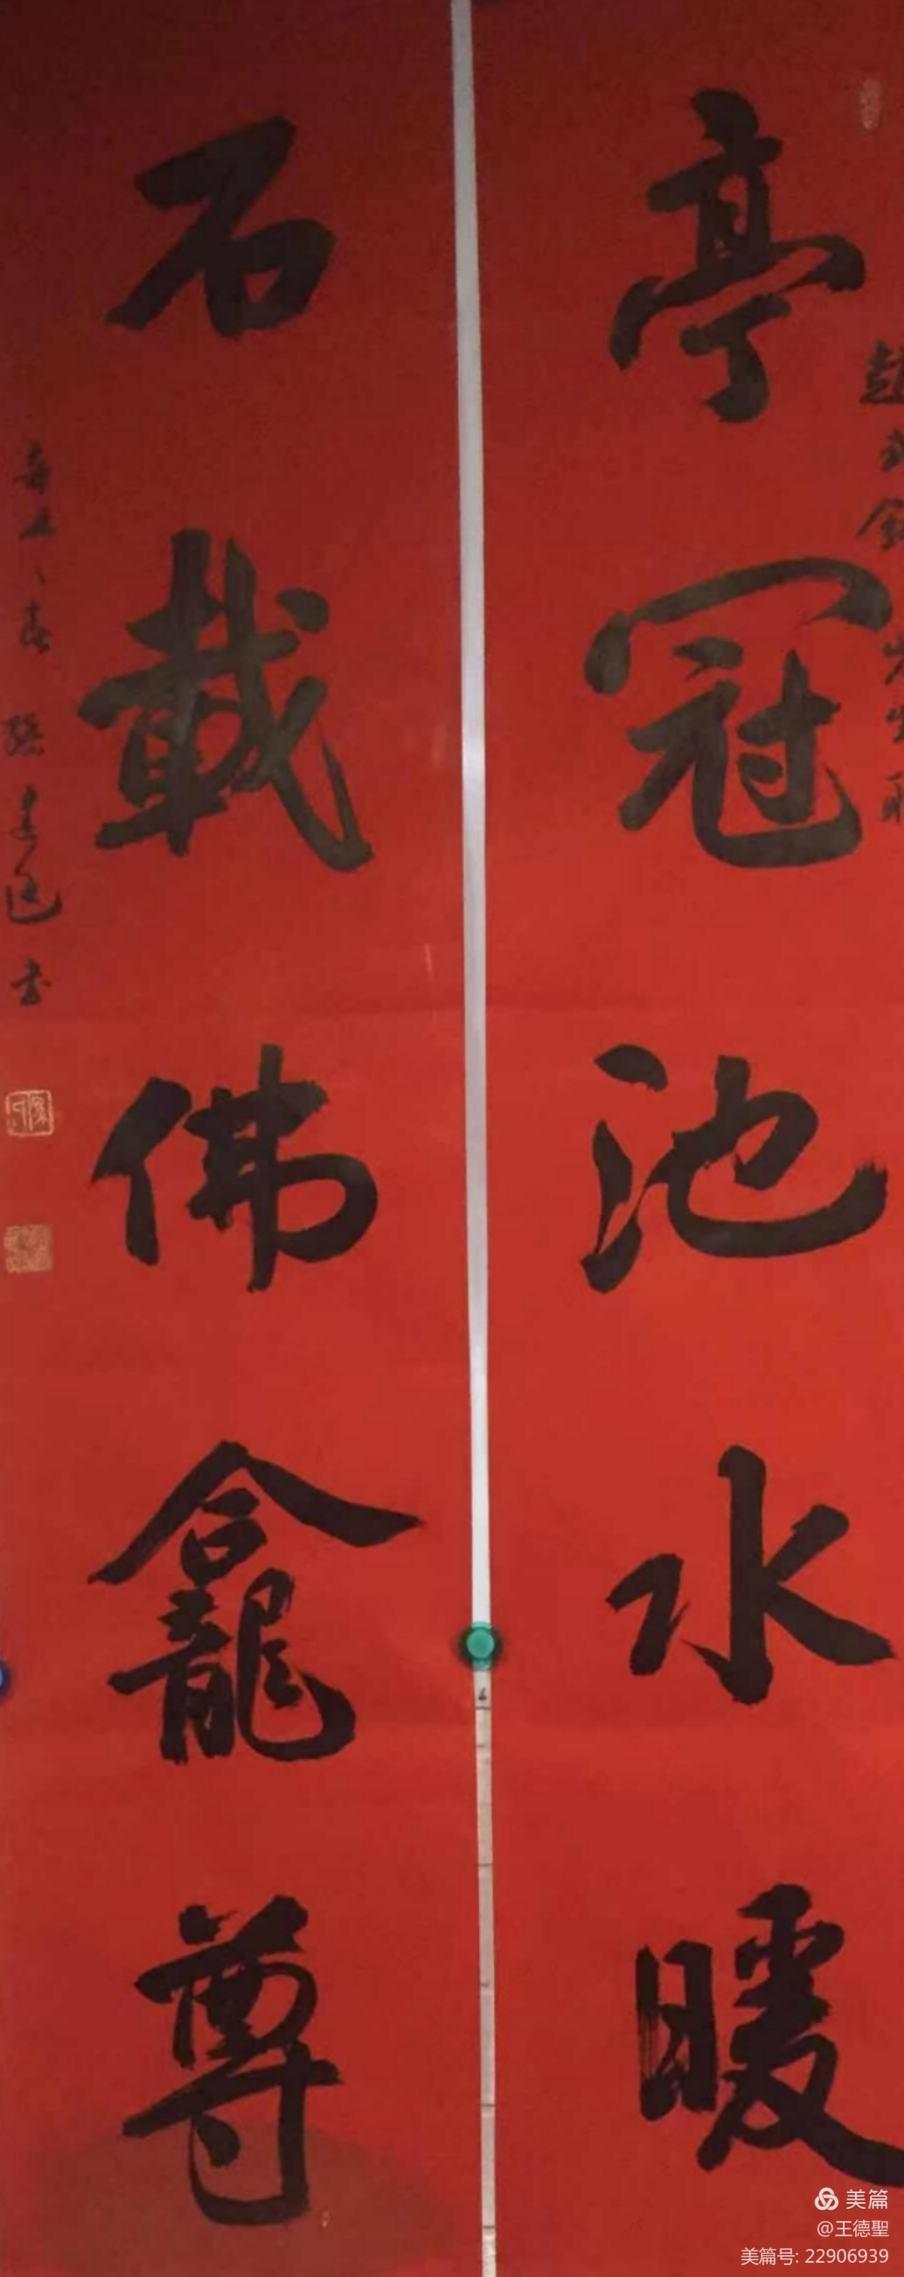 亭冠池水暖
石載佛龕尊
趙
先生
書
美篇
@王德聖
美篇号: 22906939